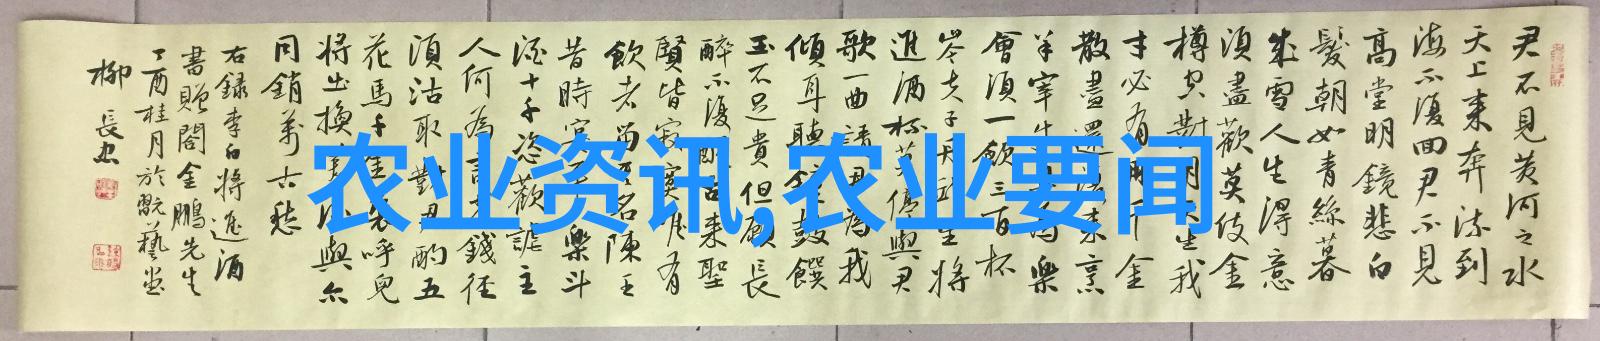 君不見黃河之水
天上來奔流到
海不復回君不見
高堂明鏡悲白
髮朝如青絲暮
成雪人生得意
須盡歡莫使金
樽空對月天生我
才必有用千金
散盡還復來烹
羊宰牛且為樂
會須一飲三百杯
岑夫子丹丘生將
進酒杯莫停與君
歌一曲請君為我
傾耳聽鼓饌
玉不足貴但願長
醉不復醒古來聖
賢皆寂寞惟有
飲者留名陳王
昔時宴樂斗
酒十千恣歡謔主
人何為言少錢径
須沽取對君酌五
花馬千金裘呼兒
將出換美酒與尔
同銷萬古愁
右録李白將進酒
書贈閤金鵬先生
丁酉桂月於翫藝堂
柳長忠
农业资讯,农业要闻